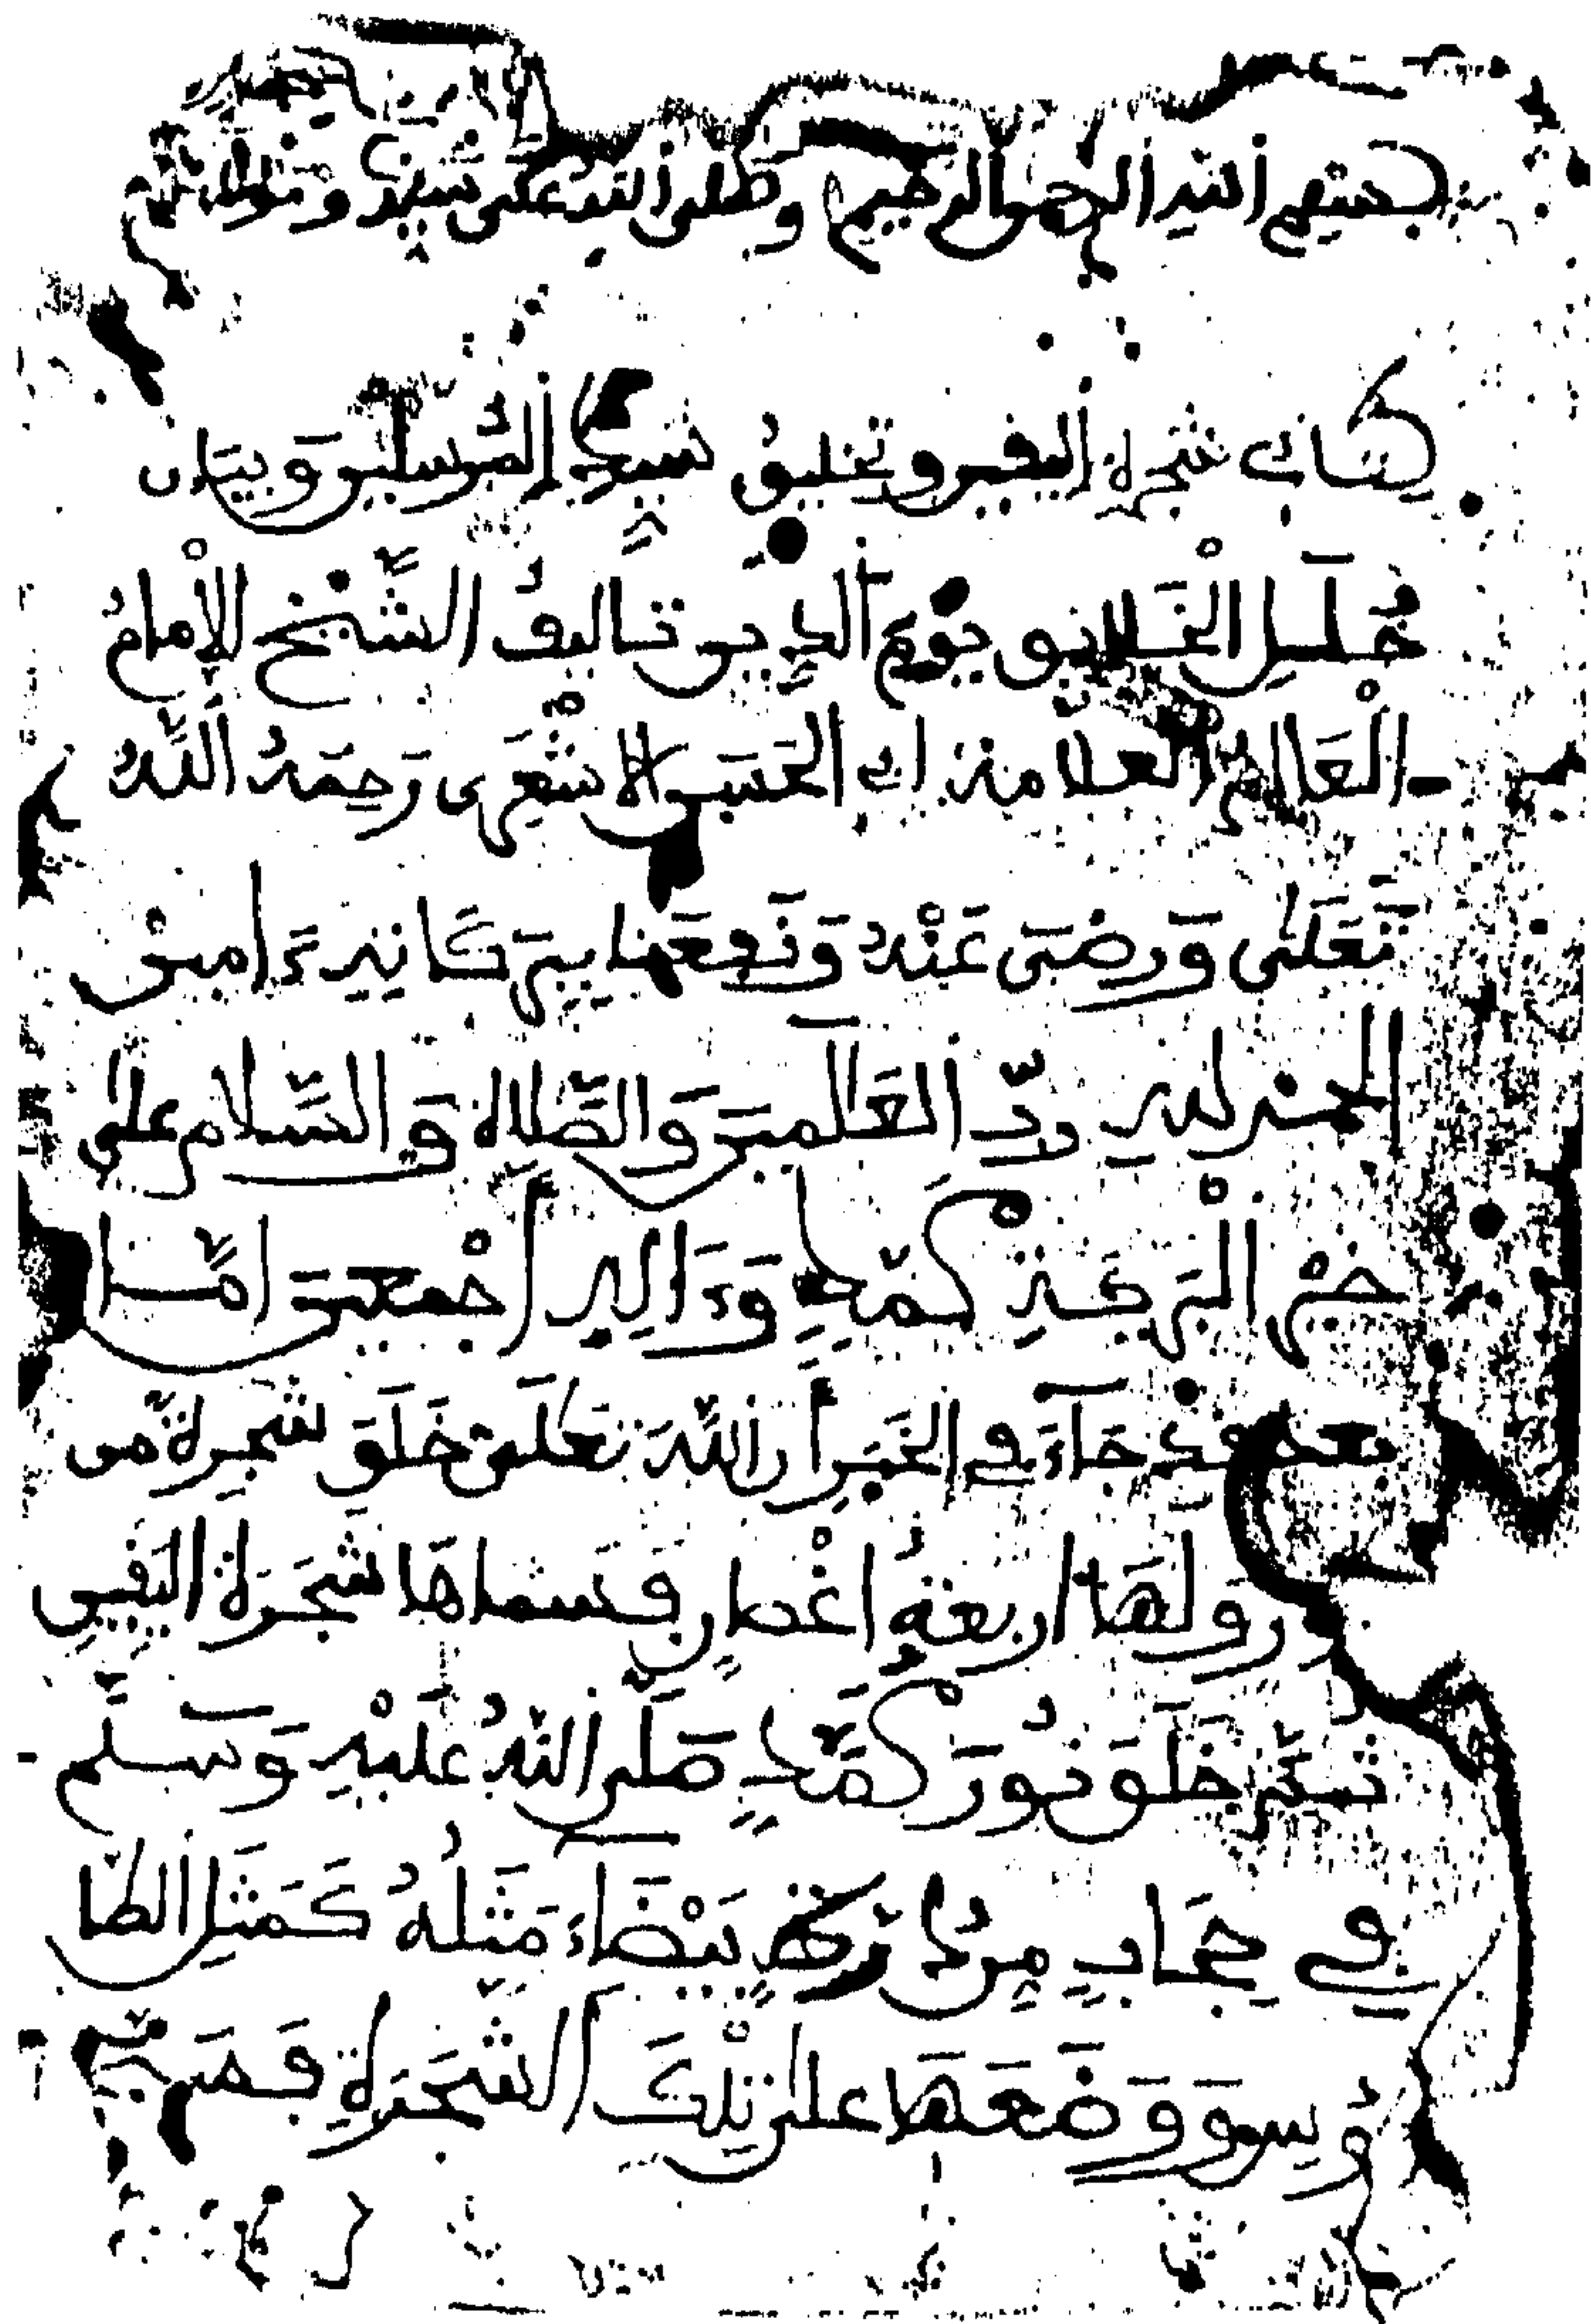 بسم الله الرحمن الرحيم وصلى الله على سيدنا ومولانا
كتاب شجرة اليقين وتخليق سيد المرسلين وَبيَان
حُلَلِ الْخَلايق يَوْم الدِّين تاليفُ الشَّيْخ الاِمامُ
الْعَالم العلامة ابي الحَسَن الاشْعَرى رَحِمَهُ اللَّهُ
تَعَلَى وَرضَىَ عَنْهُ وَنَفعَنا بِبَرَكَاتِهِ ءَامين
الحمد لله ربّ العَلَمينَ وَالصَّلاة وَالسَّلام على
خَيْر الْبَريَّةِ مُحَمَّدٍ وَءَالِهِ أجْمَعينَ امَّا
بعد فقد جَآءَ في الخَبَرِ ان اللَّهَ تَعَلَى خَلَقَ شَجَرة من
رو لهَا اربعةُ اغْصان فسماهَا شَجَرَة اليَقِينِ
ثُمَّ خَلَقَ نُورَ مُحَمَّدٍ صَلَّى اللَّهُ عَلَيْهِ وَسَلَّم
في حِجَابٍ مِن دُرَّةٍ بَيْضَآءَ مَثَلُهُ كَمَثَلِ الطَّا
وُسِ وَوَضَعَهَا عَلى تِلْكَ الشَّجَرَةِ